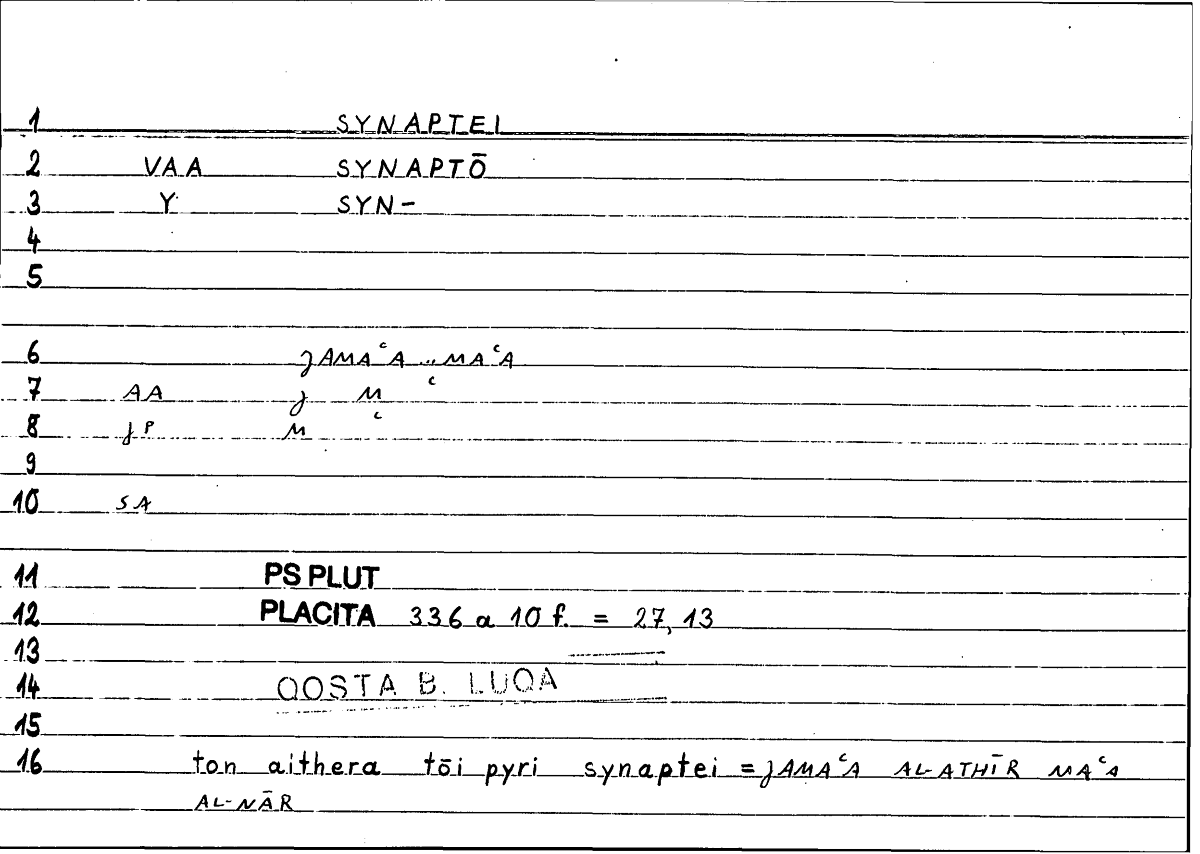 1 SYNAPTEI
2 VAA SYNAPTŌ
3 Y SYN-
4
5
6 JAMAʿA .. MAʿA
7 AA J M ʿ
8 JP M ʿ
9
10 SA
11 PS PLUT
12 PLACITA 336 a 10 f. = 27, 13
13
14 QOSTA B. LUQA
15
16 ton aithera tōi pyri synaptei = JAMAʿA AL-ATHĪR MAʿA
AL-NĀR